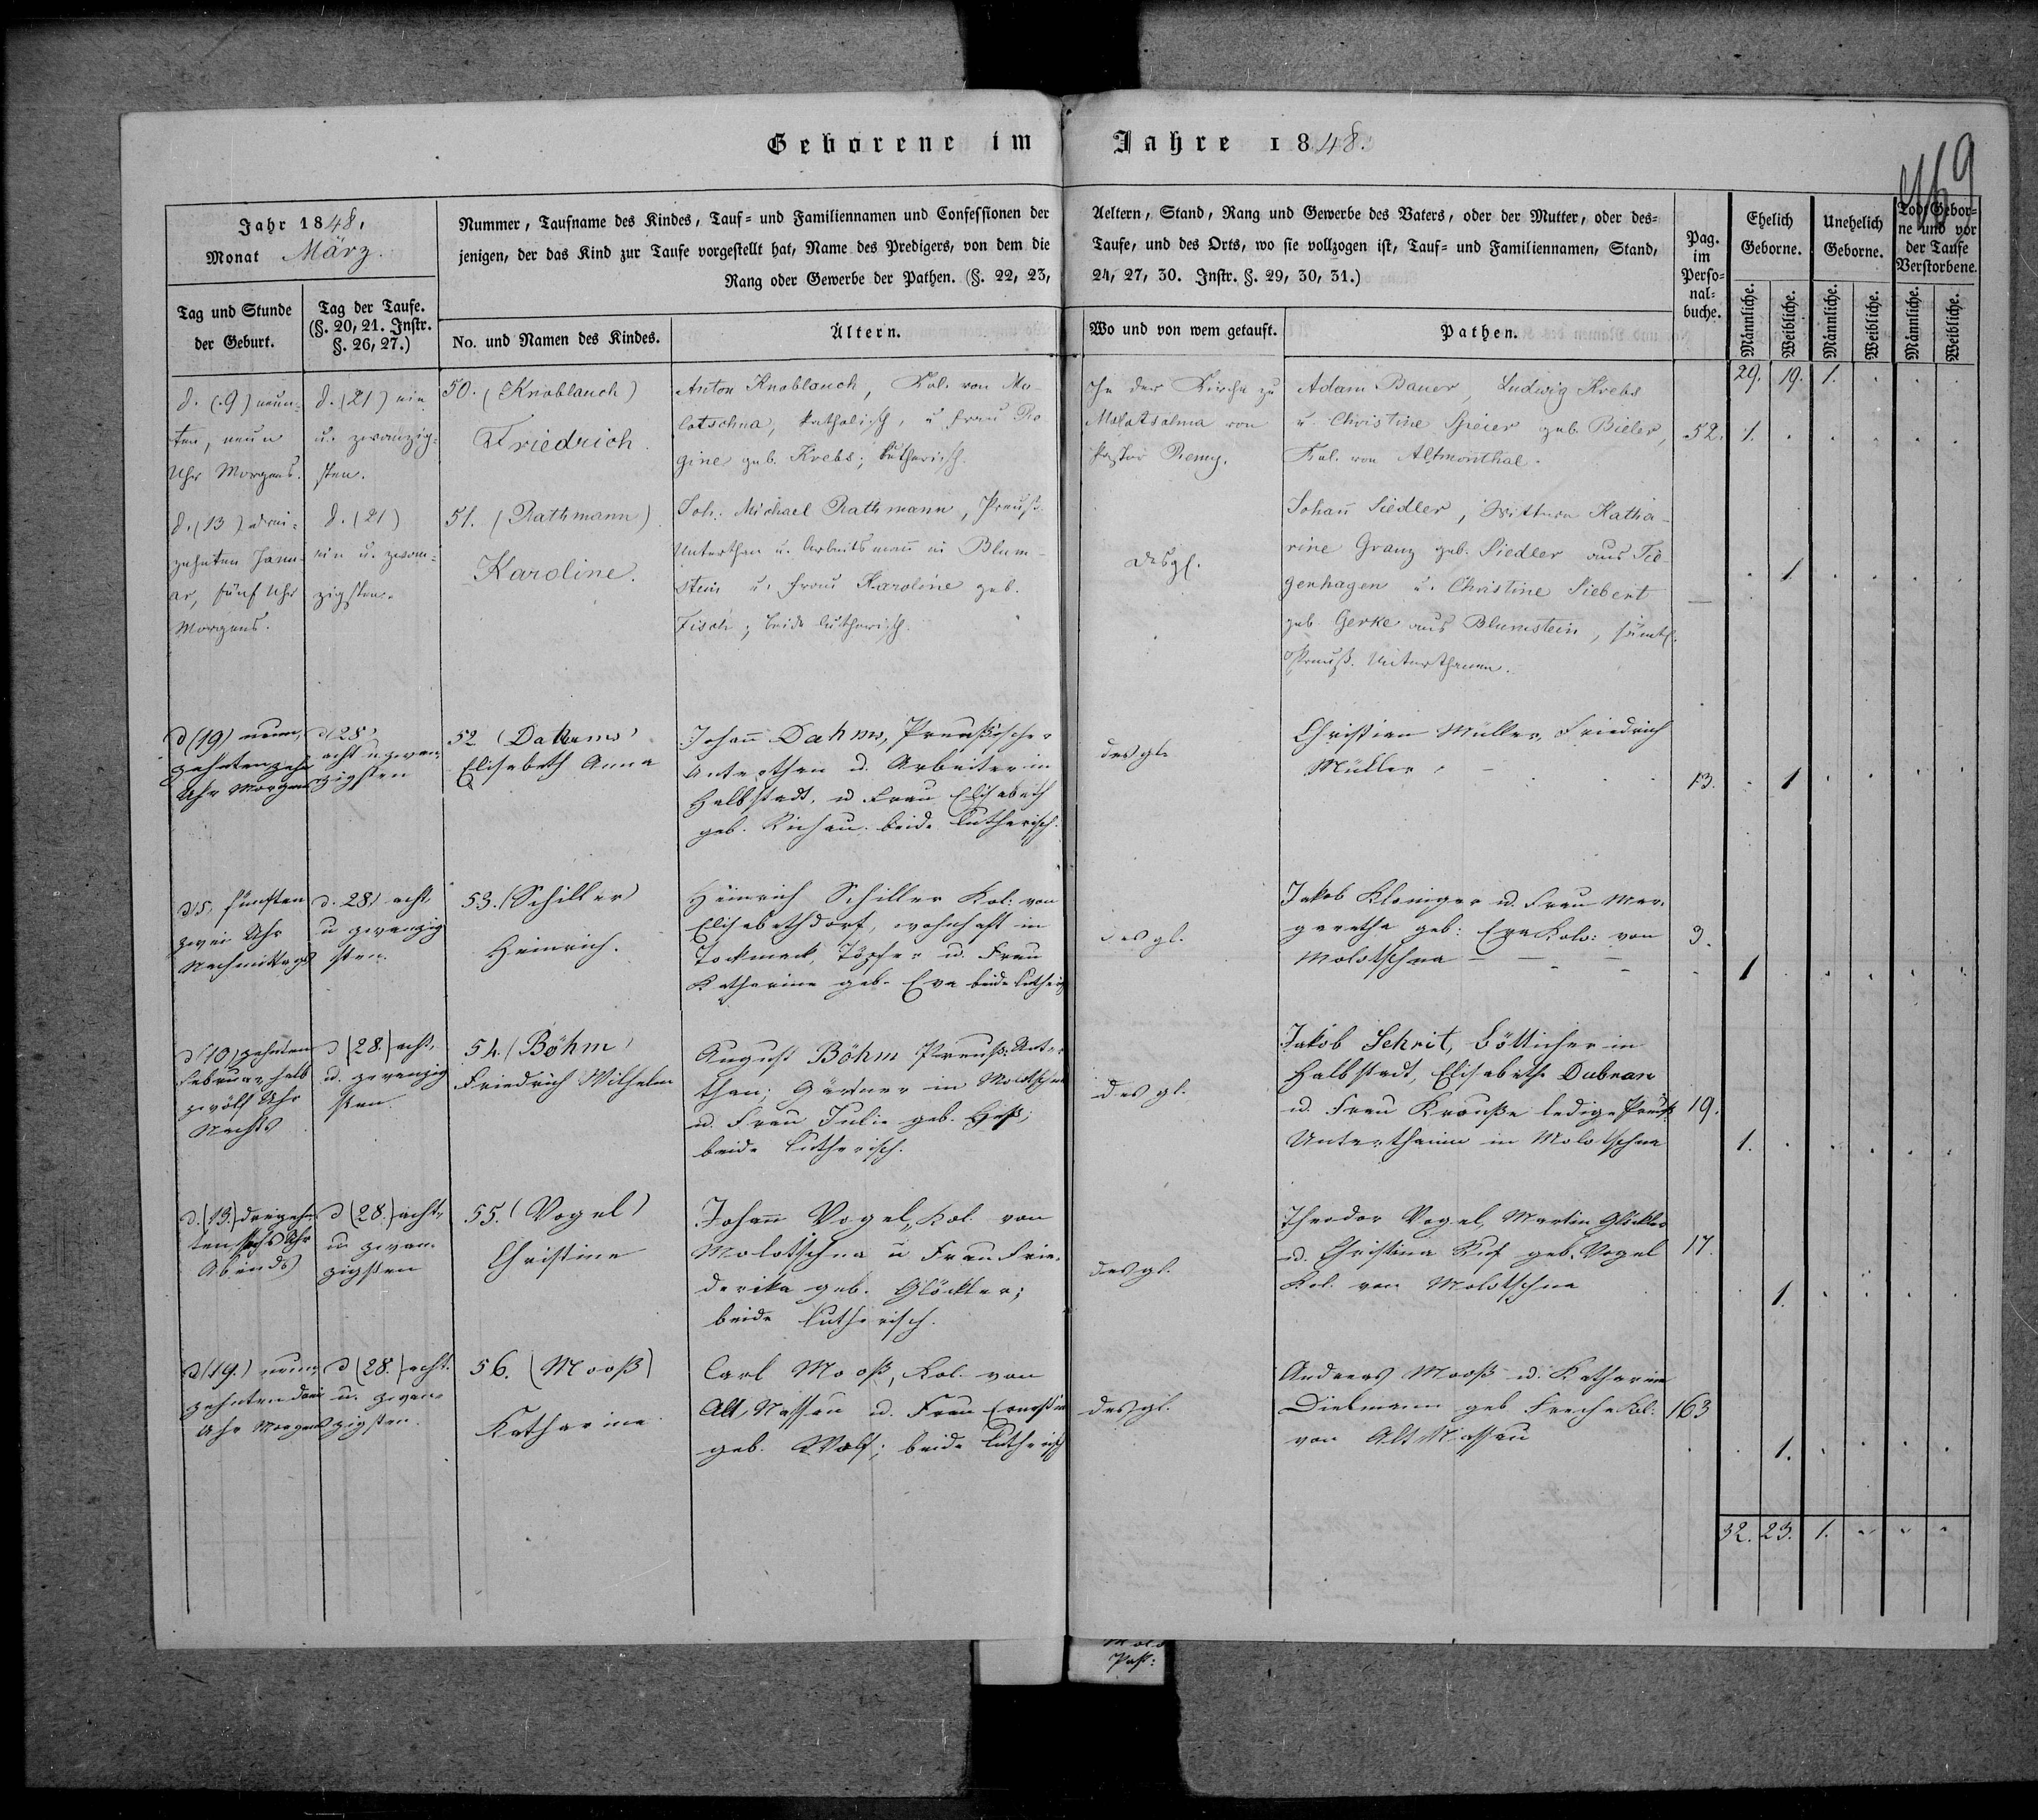 Geborene im Jahre 1848.
169
Jahr 1848,
Monat März.
Nummer, Taufname des Kindes, Tauf- und Familiennamen und Confessionen der Aeltern, Stand, Rang und Gewerbe des Vaters, oder der Mutter, oder des-
jenigen, der das Kind zur Taufe vorgestellt hat, Name des Predigers, von dem die Taufe, und des Orts, wo sie vollzogen ist, Tauf- und Familiennamen, Stand,
Rang oder Gewerbe der Pathen. (§. 22, 23, 24, 27, 30. Instr. §. 29, 30, 31.)
Pag. im Perso-nal-buche.
Ehelich Geborne.
Unehelich Geborne.
Todt Gebor-ne und vor der Taufe Verstorbene.
Tag und Stunde der Geburt.
Tag der Taufe. (§. 20, 21. Instr. §. 26, 27.)
No. und Namen des Kindes.
Ältern.
Wo und von wem getauft.
Pathen.
Männliche. Weibliche. Männliche. Weibliche. Männliche. Weibliche.
29. 19. 1. . . .
d. (9) neun-
ten, neun
Uhr Morgens.
d. (21) ein
u. zwanzig-
sten.
50. (Knoblauch)
Friedrich.
Anton Knoblauch, Kol. von Mo-
lotschna, katholisch, u Frau Ro
gine geb. Krebs; lutherisch.
In der Kirche zu
Molotschna von
Pastor Remy.
Adam Bauer, Ludwig Krebs
u. Christine Speier geb. Bieler,
Kol. von Altmonthal.
52. 1. . . . . .
d. (13) drei-
zehnten Janu-
ar, fünf Uhr
Morgens.
d. (21)
ein u. zwan-
zigsten.
51. (Rathmann)
Karoline.
Joh. Michael Rathmann, Preuß.
Unterthan u. Arbeitsmann in Blum-
stein u. Frau Karoline geb.
Fisch; beide lutherisch.
desgl.
Johann Siedler, Wittwe Katha-
rine Granz geb. Siedler aus Tie-
genhagen u. Christine Siebert
geb. Gerke aus Blumstein, sämtl.
Preuß. Unterthanen.
— . 1. . . . .
d (19) neun-
zehnten zehn
Uhr Morgens
d (28)
acht u zwan-
zigsten
52 (Dahms)
Elisabeth Anna
Johann Dahms, Preußischer
Unterthan u. Arbeiter in
Halbstadt, u. Frau Elisabeth
geb. Richau. beide lutherisch.
desgl.
Christian Müller, Friedrich
Müller.
13. . 1 . . . .
d (5) fünften
zwei Uhr
Nachmittags
d. 28) acht
u zwanzig
sten.
53. (Schiller)
Heinrich.
Heinrich Schiller Kol. von
Elisabethdorf, wohnhaft in
Tockmack, Töpfer u. Frau
Katharine geb. Eva beide luther.
desgl.
Jakob u. Frau Mar-
garetha geb: Eva Kolo: von
Molotschna
3. 1 . . . . .
d (10) zehnten
Februar halb
zwölf Uhr
Nachts
d (28.) acht
u. zwanzig
sten.
54. (Böhm)
Friedrich Wilhelm
August Böhm Preuß: Unter-
than; Gärtner in Molotschna
u. Frau Julie geb. Heß;
beide lutherisch.
desgl.
Jakob Schrit, Bötticher in
Halbstadt, Elisabethe Dubnan
u. Frau Krauße ledige Preuß.
Unterthanin in Molotschna
19. 1. . . . . .
d. (13.) dreizehn-
ten sechs Uhr
Abends
d (28.) acht-
u zwan-
zigsten
55. (Vogel)
Christine
Johann Vogel, Kol. von
Molotschna u Frau Frie-
derika geb. Glöckler;
beide lutherisch.
desgl.
Theodor Vogel, Martin Glöckler
u. Christina Kuf geb. Vogel
Kol. von Molotschna
17. . 1. . . . .
d (19.) neun-
zehnten drei
Uhr Morgens
d (28.) acht
u. zwan-
zigsten.
56. (Mooß)
Katharina.
Carl Mooß, Kol. von
Alt-Nassau u. Frau Ernestine
geb. Wolf; beide lutherisch
desgl.
Andreas Mooß u. Katharina
Dielmann geb Kol.
von Alt Nassau
163 . 1. . . . .
32. 23. 1. . . .
Past: